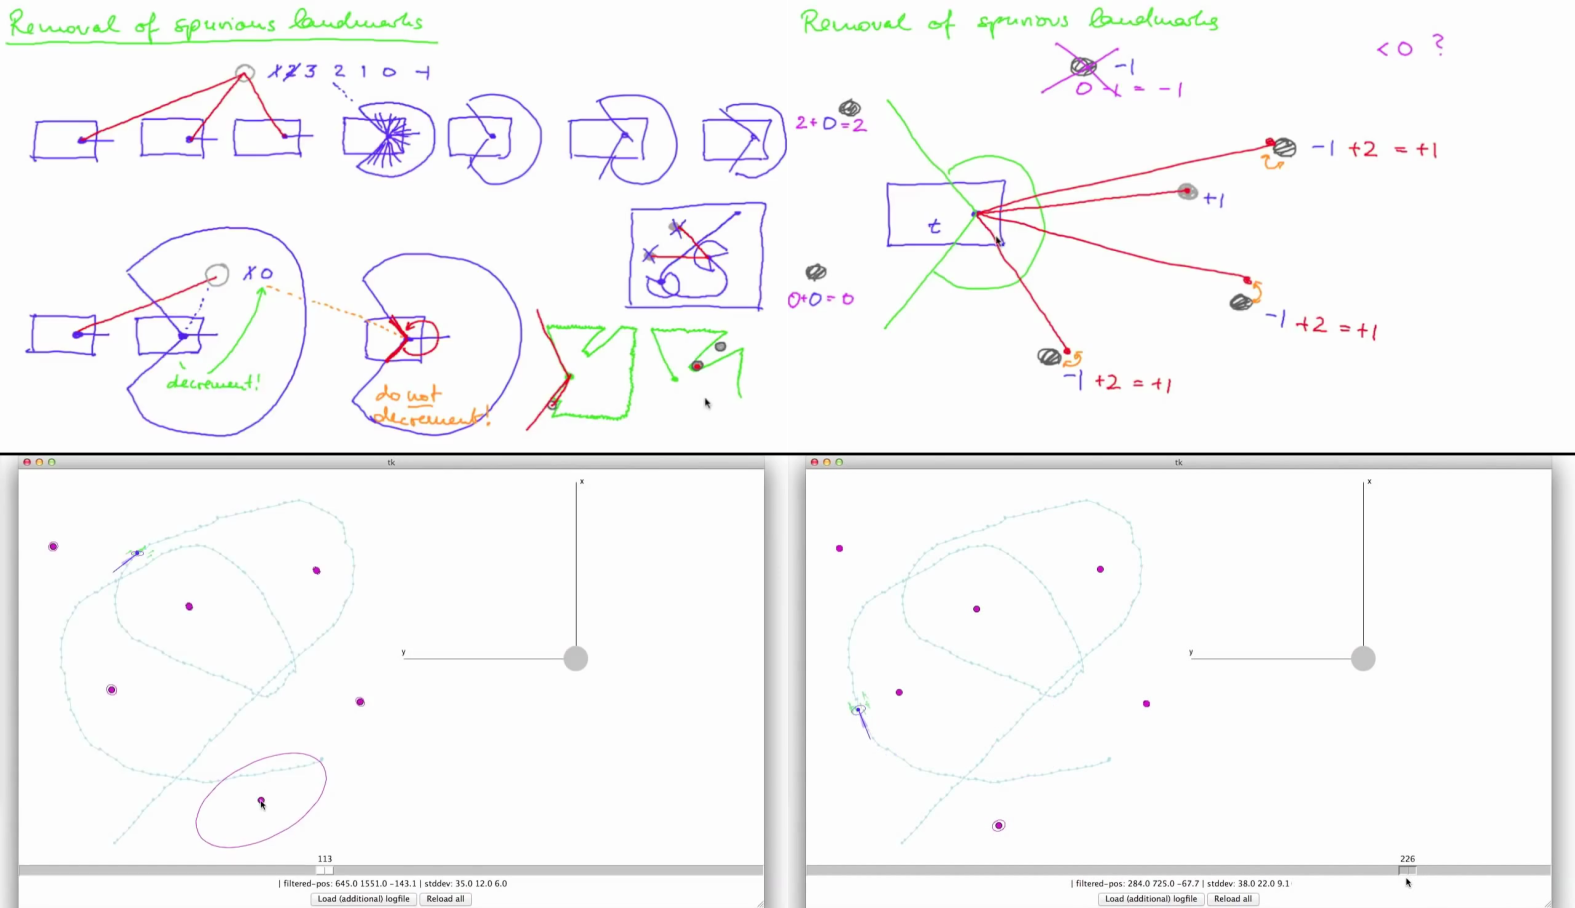 Removal of spurious landmarks
3 2 1 0 -1
0
decrement!
do not
decrement!
Removal of spurious landmarks
< 0 ?
-1
0 -1 = -1
2+0=2
-1 +2 = +1
+1
t
0+0=0
-1 +2 = +1
-1 +2 = +1
tk
x
y
113
| filtered-pos: 645.0 1551.0 -143.1 | stddev: 35.0 12.0 6.0
Load (additional) logfile Reload all
tk
x
y
226
| filtered-pos: 284.0 725.0 -67.7 | stddev: 38.0 22.0 9.1
Load (additional) logfile Reload all